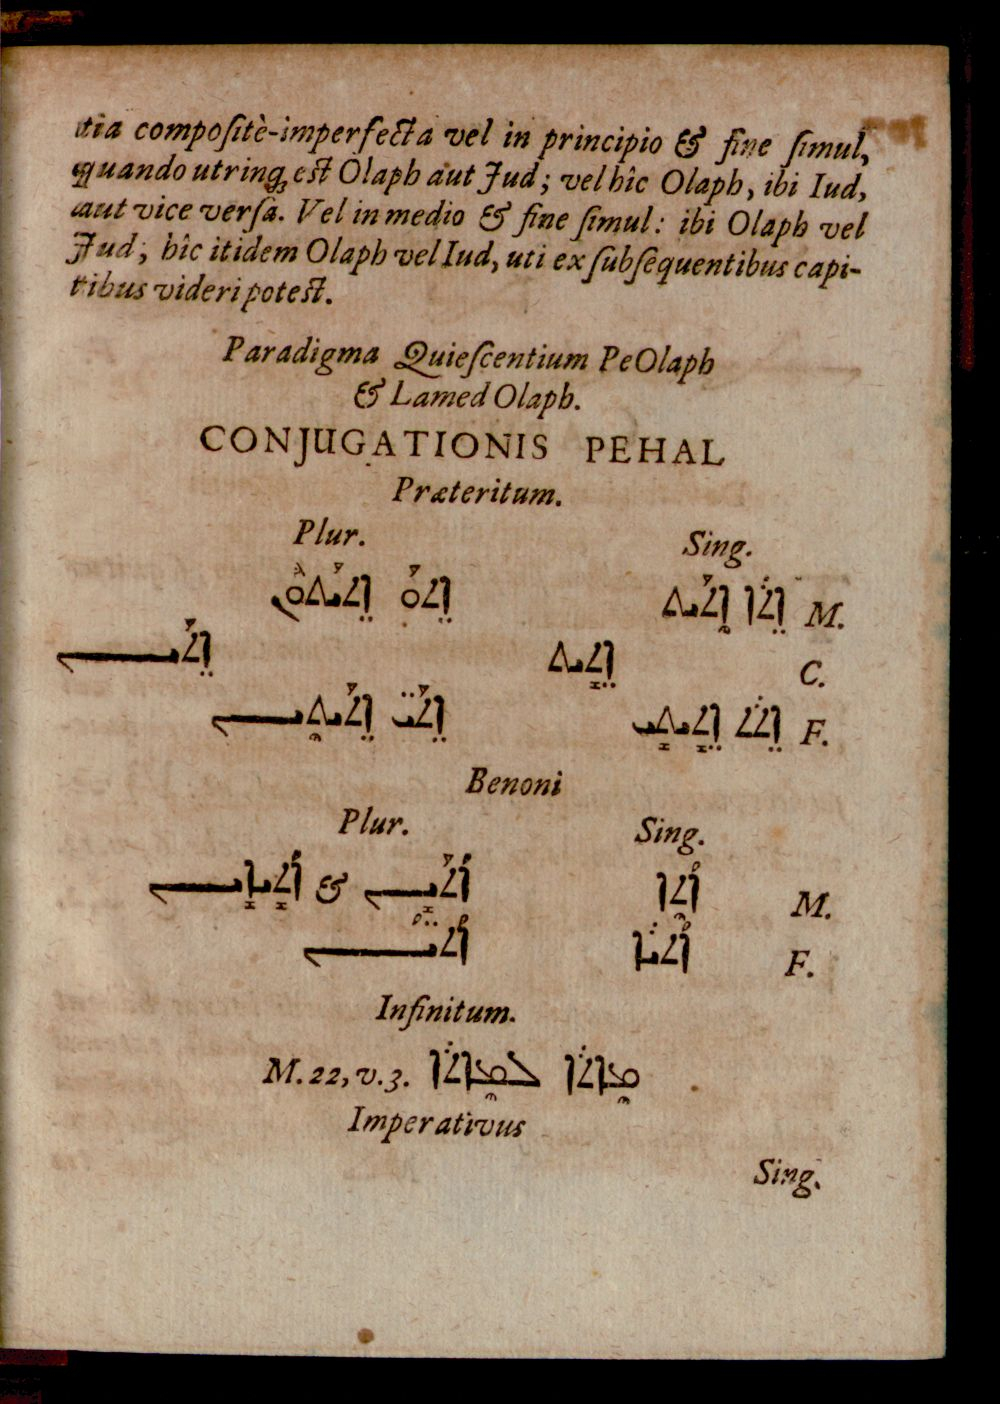 tia compoſitè-imperfecta vel in principio & fine ſimul,
quando utrinq; eſt Olaph aut Jud; vel hîc Olaph, ibi Iud,
aut vice verſa. Vel in medio & fine ſimul: ibi Olaph vel
Jud; hîc itidem Olaph vel Iud, uti ex ſubſequentibus capi-
tibus videri poteſt.
Paradigma Quieſcentium Pe Olaph
& Lamed Olaph.
CONJUGATIONIS PEHAL
Præteritum.
Plur. Sing.
M. ܐܬܐ ܐܬܝܬ ܐܬܘ ܐܬܝܬܘܢ
C. ܐܬܝܬ ܐܬܝܢ
F. ܐܬܬ ܐܬܝܬܝ ܐܬܝ ܐܬܝܬܝܢ
Benoni
Plur. Sing.
M. ܐܬܐ ܐܬܝܢ & ܐܬܝܐܝܢ
F. ܐܬܝܐ ܐܬܝܢ
Infinitum.
ܡܐܬܐ ܠܡܐܬܐ M. 22, v. 3.
Imperativus
Sing.